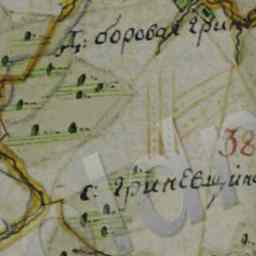 Д: боровая грин
38
с: гриневщина